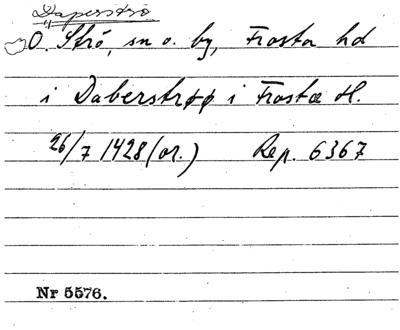 Daperströ
O. Strö, sn o. by, Frosta hd
i Daberstrøø i Frostæ H.
26/7 1428 (or.) Rep. 6367
Nr 5576.